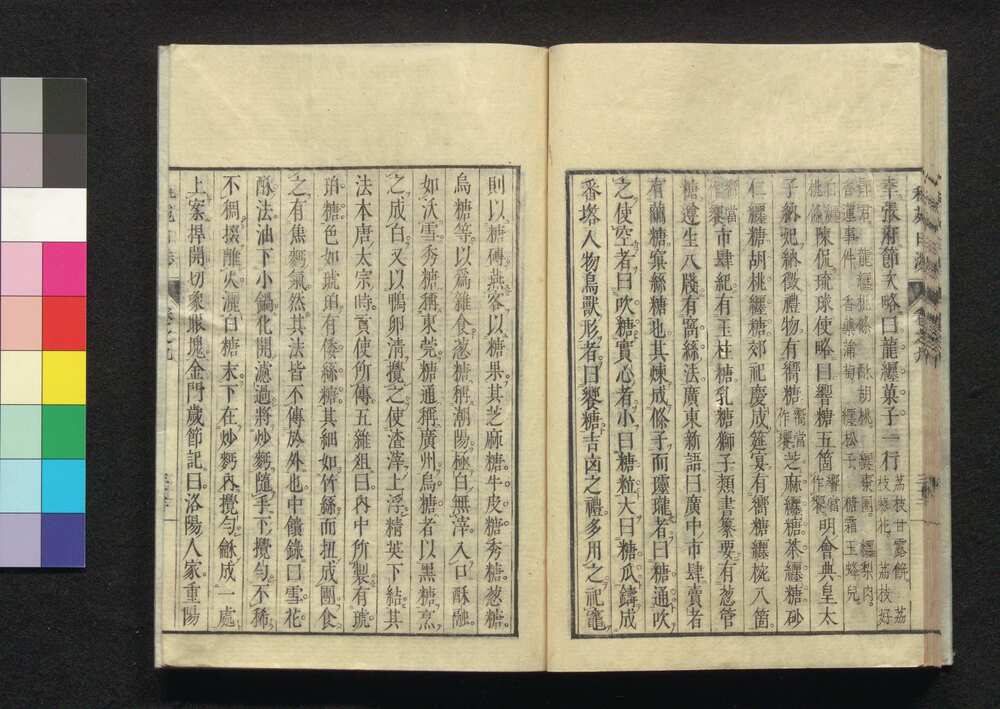 幸張府節次略曰龍纏菓子一行 荔枝甘露餅 荔枝蓼花 荔枝好
郎君 龍纏桃條 酥胡桃 纏棗圈 纏梨肉
香蓮事件 香藥蒲萄 纏松子 糖霜玉蜂兒
桃條 陳侃琉球使略曰響糖五箇 響當作饗 明會典皇太
子納妃納徵禮物有響糖 響當作饗 芝麻纏糖茶纏糖砂
仁纏糖胡桃纏糖郊祀慶成筵宴有響糖纏椀八箇
響當作饗 市肆紀有玉柱糖乳糖獅子類書纂要有葱管
糖遵生八牋有窩絲法廣東新語曰廣中市肆賣者
有繭糖窠絲糖也其煉成條子而瓏瓏者曰糖通吹
之使空者曰吹糖實心者小曰糖粒大曰糖瓜鑄成
番塔人物鳥獸形者曰饗糖吉凶之禮多用之祀竈
則以糖磚燕客以糖果其芝麻糖牛皮糖秀糖葱糖
烏糖等以爲雜食葱糖稱潮陽極白無滓入口酥融
如沃雪秀糖稱東莞糖通稱廣州烏糖者以黑糖烹
之成白又以鴨卵清攪之使渣滓上浮精英下結其
法本唐太宗時貢使所傳五雜俎曰內中所製有琥
珀糖色如琥珀有倭絲糖其細如竹絲而扭成團食
之有焦麪氣然其法皆不傳於外也中饋錄曰雪花
酥法油下小鍋化開濾過將炒麪隨手下攪勻不稀
不稠攘離火灑白糖末下在炒麪內攪勻龢成一處
上案捍開切象眼塊金門歲節記曰洛陽人家重陽